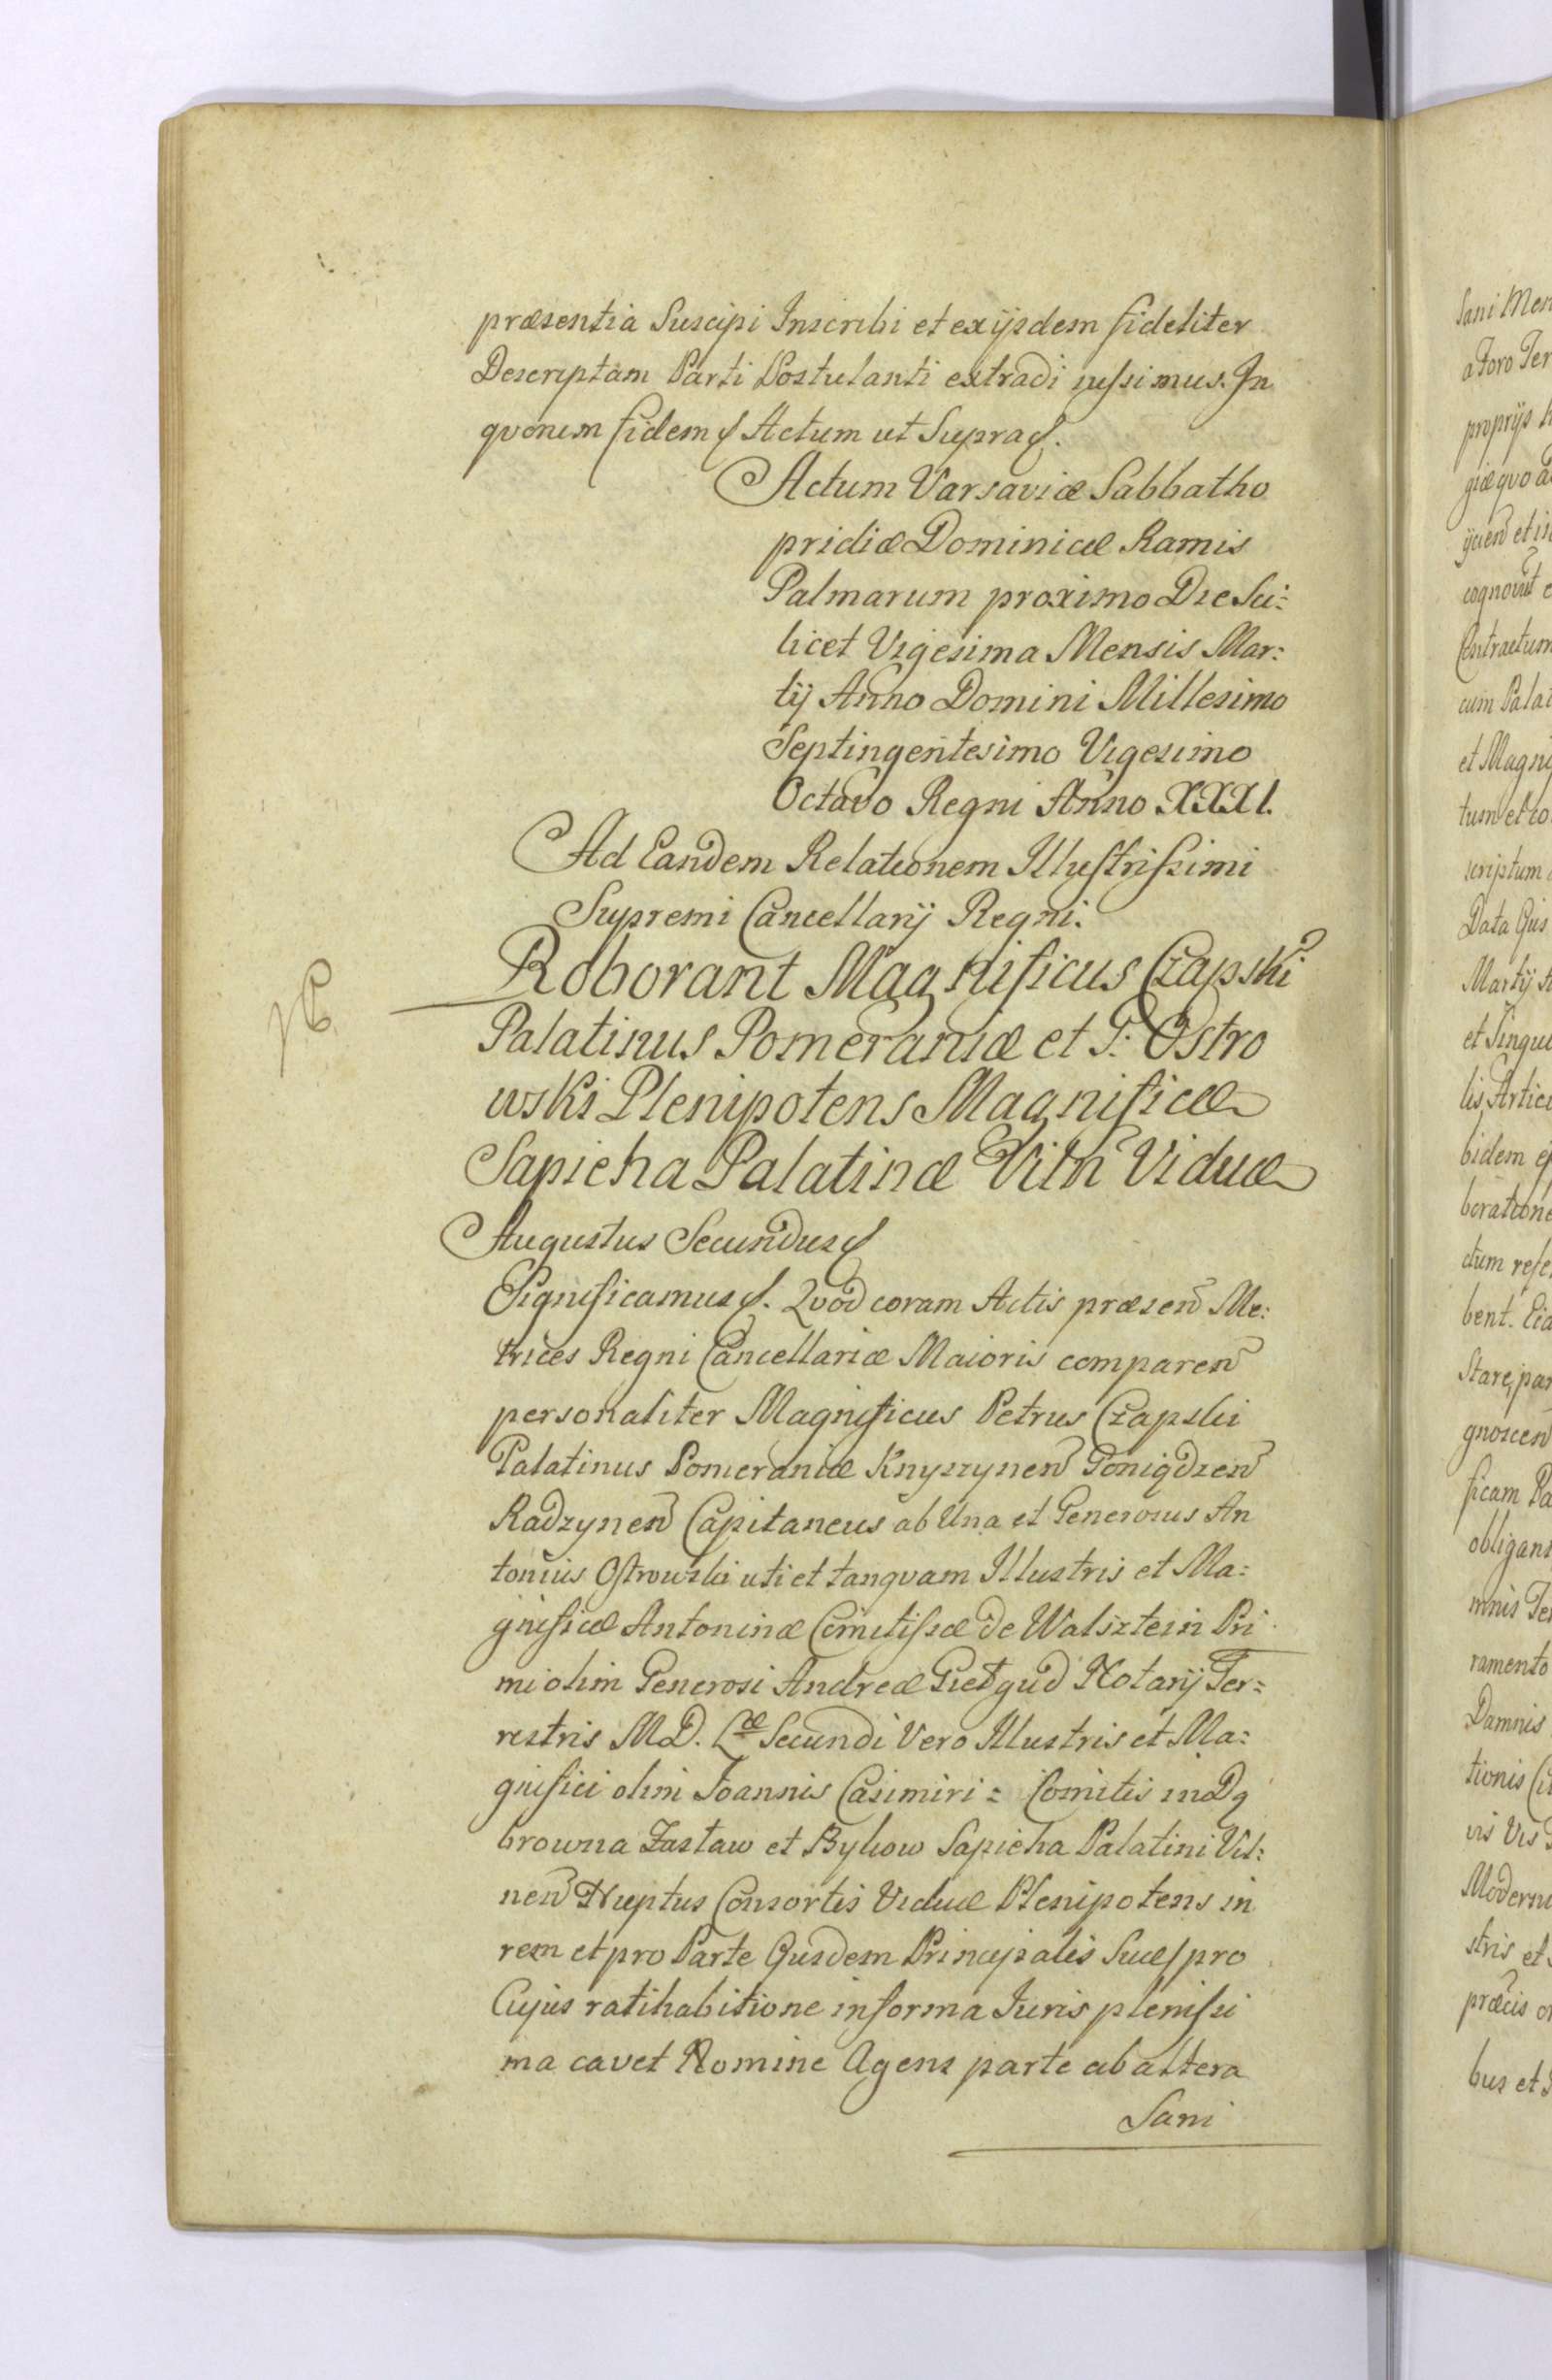 præsentia Suscipi Inscribi et ex ijsdem fideliter
Descriptam Parti Postulanti extradi iussimus. In
quorum fidem & Actum ut Supra &.
Actum Varsaviæ Sabbatho
pridiæ Dominicæ Ramis
Palmarum proximo Die Sci:
licet Vigesima Mensis Mar:
tij Anno Domini Millesimo
Septingentesimo Vigesimo
Octavo Regni Anno XXXI.
Ad Eandem Relationem Illustrissimi
Supremi Cancellarij Regni.
Roborant Magnificus Czapski
Palatinus Pomeraniæ et G: Ostro
wski Plenipotens Magnificæ
Sapieha Palatinæ Viln Viduæ
Augustus Secundus &
Significamus &. Quod coram Actis præsen Me:
trices Regni Cancellariæ Maioris comparen
personaliter Magnificus Petrus Czapski
Palatinus Pomeraniæ Knyszynen Goniądzen
Radzynen Capitaneus ab Una et Generosus An
tonius Ostrowski uti et tanquam Illustris et Ma:
gnificæ Antoninæ Comitissæ de Walsztein Pri
mi olim Generosi Andreæ Giedgud Notarij Ter:
restris M.D. Læ Secundi Vero Illustris et Ma:
gnifici olim Joannis Casimiri = Comitis in Dą
browna Zasław et Byhow Sapieha Palatini Vil:
nen Nuptus Consortis Viduæ Plenipotens in
rem et pro Parte Ejusdem Principalis Suæ/ pro
Cujus ratihabitione in forma Juris plenissi
ma cavet Nomine Agens parte ab altera
Sani
Sani Men
a Foro Ter
proprijs
giæ quo a
ijcien et in
cognovit
Contractum
cum Palat
et Magni
tum et ro
scriptum
Data Ejus
Martij
et Singul
lis Artic
bidem
boratione
ctum
bent. Ea
Stare, par
gnoscen
ficam Pa
obligans
mnis Ter
ramento
Damnis
tionis Ci
vis Vis
Moderni
stris et
præcis
bus et